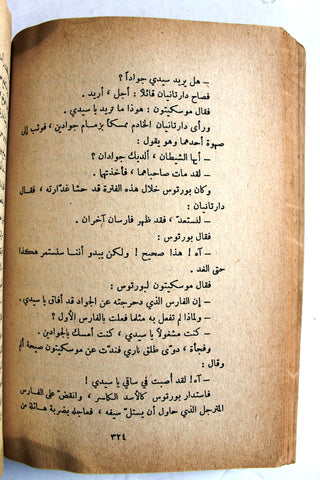 – هل يريد سيدي جواداً ؟
فصاح دارتانيان قائلاً : أجل ، أريد .
فقال موسكيتون : هوذا ما تريد يا سيدي .
ورأى دارتانيان الخادم ممسكاً بزمام جوادين ، فوثب إلى
صهوة أحدهما وهو يقول :
– أيها الشيطان ، ألديك جوادان ؟
– لقد مات صاحباهما ، فأخذتها .
وكان بورتوس خلال هذه الفترة قد حشا غدّارته ، فقال
دارتانيان :
– لنستعدّ ، فقد ظهر فارسان آخران .
فقال بورتوس :
– آه ! هذا صحيح ! ولكن يبدو أننا سنستمر هكذا
حتى الغد .
فقال موسكيتون لبورتوس :
– إن الفارس الذي دحرجته عن الجواد قد أفاق يا سيدي .
– ولماذا لم تفعل به مثلما فعلت بالفارس الأول ؟
– كنت مشغولاً يا سيدي ، كنت امسك بالجوادين .
وفجأة ، دوّى طلق ناري فندّت عن موسكيتون صيحة ألم
وقال :
– آه ! لقد أصبت في ساقي يا سيدي !
فاستدار بورتوس كالأسد الكاسر ، وانقضّ على الفارس
المترجل الذي حاول أن يستلّ سيفه ، فعاجله بضربة هائلة من
٣٢٤